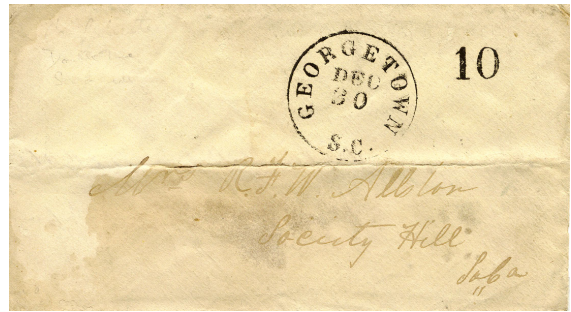 GEORGETOWN
DEC
30
S.C.
10
Mrs R.F.W. Allston
Society Hill
So Ca